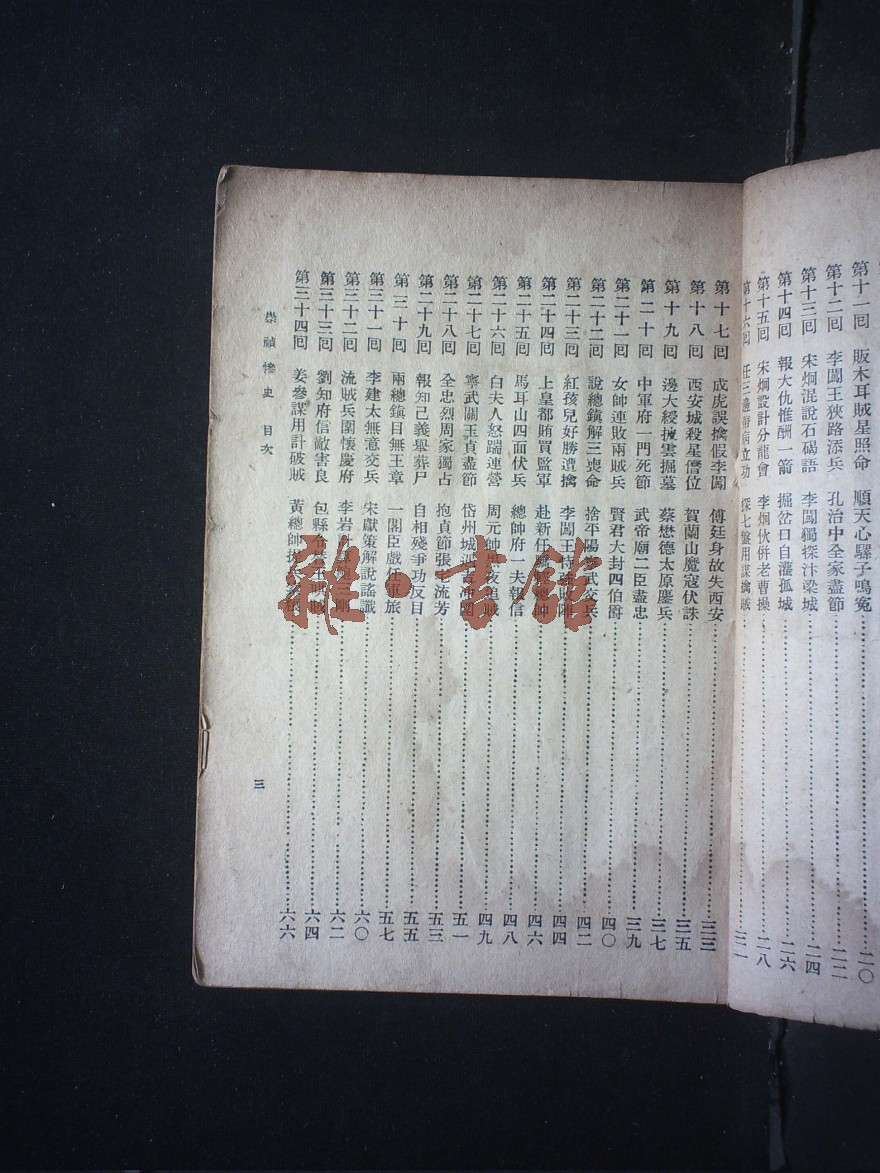 第十一回 販木耳賊星照命 順天心騾子鳴冤 二〇
第十二回 李闖王狹路添兵 孔治中全家盡節 二二
第十三回 宋炯混說石碣語 李闖獨探汴梁城 二四
第十四回 報大仇惟酬一箭 掘岔口自灌孤城 二六
第十五回 宋炯設計分龍會 李炯伙併老曹操 二八
第十六回 任三邊 病立功 探七盤用謀擒賊 三一
第十七回 成虎誤擒假李闖 傅廷身故失西安 三三
第十八回 西安城殺星僭位 賀蘭山魔寇伏誅 三五
第十九回 邊大綬擁雲掘墓 蔡懋德太原鏖兵 三七
第二十回 中軍府一門死節 武帝廟二臣盡忠 三九
第二十一回 女帥連敗兩賊兵 賢君大封四伯爵 四〇
第二十二回 說總鎮解三喪命 捨平陽 武交兵 四二
第二十三回 紅孩兒好勝遭擒 李闖王恃強敗陣 四四
第二十四回 上皇都賄買監軍 赴新任 總帥 四六
第二十五回 馬耳山四面伏兵 總帥府一夫報信 四八
第二十六回 白夫人怒踹連營 周元帥黑夜追賊 四九
第二十七回 寧武關玉貞盡節 岱州城 五一
第二十八回 全忠烈周家獨占 抱貞節張 流芳 五三
第二十九回 報知己義舉葬尸 自相殘爭功反目 五五
第三十回 兩總鎮目無王章 一閣臣戲任軍旅 五七
第三十一回 李建太無意交兵 宋獻策解說謠讖 六〇
第三十二回 流賊兵圍懷慶府 李岩 六二
第三十三回 劉知府信敵害良 包縣令 賊 六四
第三十四回 姜參謀用計破賊 黃總帥 六六
崇禎慘史 目次
三
雜·書館